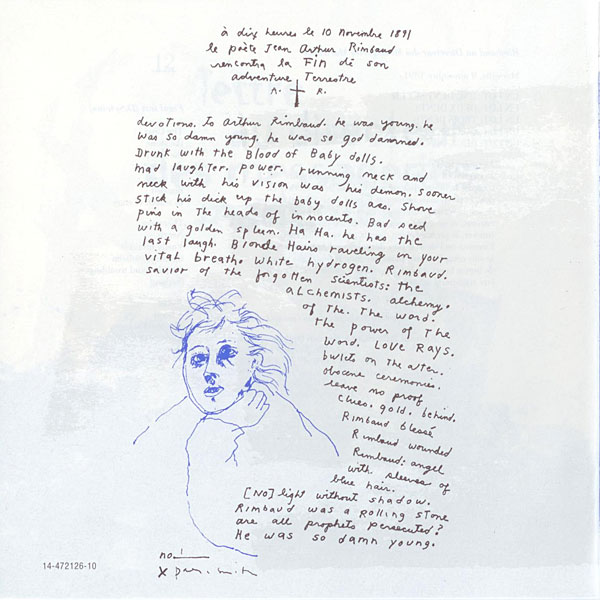 à dix heures le 10 Novembre 1891
le poète Jean Arthur Rimbaud
rencontra la Fin dé son
adventure Terrestre
A. R.
devotions. To Arthur Rimbaud. he was young. he
was so damn young. he was so god damned.
Drunk with the Blood of Baby dolls.
mad laughter. power. running neck and
neck with his vision was his demon. sooner
stick his dick up the baby dolls ass. Shove
pins in The heads of innocents. Bad seed
with a golden spleen. Ha Ha. he has the
last laugh. Blonde Hairs raveling in your
vital breath. white hydrogen. Rimbaud.
savior of the forgotten scientists: the
aLchemists. alchemy.
of The. The word.
the power of The
word. LOVE RAYS.
bullets on The alter.
obscene ceremonies.
leave no proof
clues. gold. behind.
Rimbaud blessé
Rimbaud wounded
Rimbaud: angel
with sleeves of
blue hair.
[NO] light without shadow.
Rimbaud was a Rolling Stone
are all prophets persecuted?
He was so damn young.
no!
14-472126-10